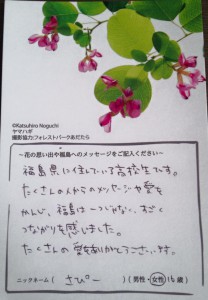 ©Katsuhiro Noguchi
ヤマハギ
撮影協力:フォレストパークあだたら
ー花の思い出や福島へのメッセージをご記入くださいー
福島県に住んでいる高校生です。
たくさんの人からのメッセージや愛を
かんじ、福島は一つじゃない、すごく
つながりを感じました。
たくさんの愛をありがとうございます。
ニックネーム( さぴー )(男性・女性 16歳)